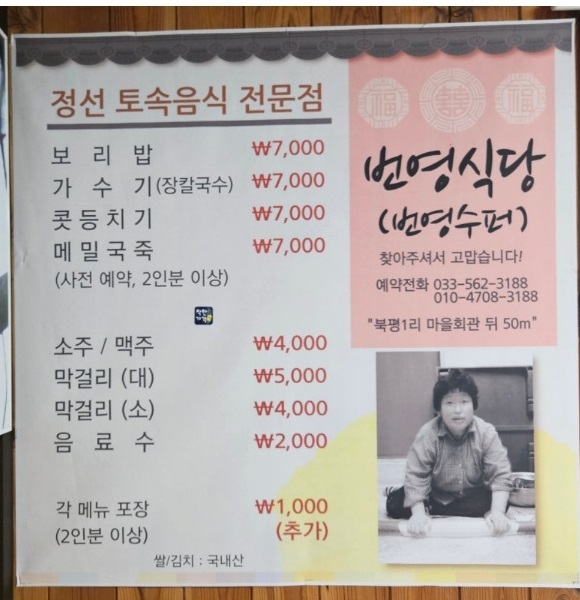 정선 토속음식 전문점
보 리 밥 ₩7,000
가 수 기(장칼국수) ₩7,000
콧등치기 ₩7,000
메밀국죽 ₩7,000
(사전 예약, 2인분 이상)
착한
가격
소주 / 맥주 ₩4,000
막걸리 (대) ₩5,000
막걸리 (소) ₩4,000
음 료 수 ₩2,000
각 메뉴 포장 ₩1,000
(2인분 이상) (추가)
쌀/김치 : 국내산
福 囍 福
번영식당
(번영수퍼)
찾아주셔서 고맙습니다!
예약전화 033-562-3188
010-4708-3188
"북평1리 마을회관 뒤 50m"